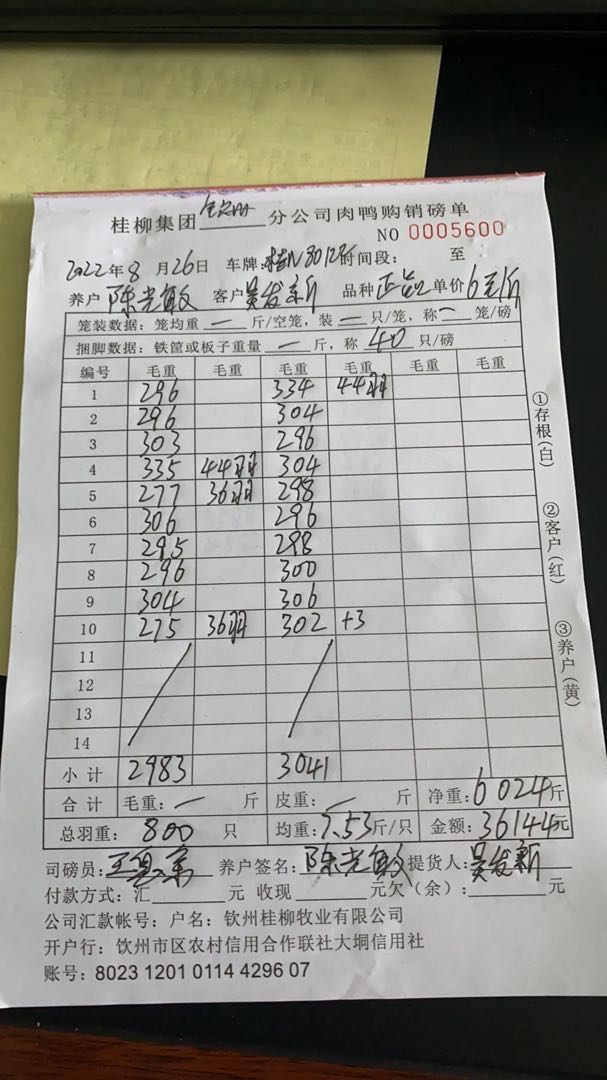 桂柳集团 分公司肉鸭购销磅单
NO 0005600
2022年8月26日 车牌: 时间段: 至
养户 陈光敏 客户 吴发新 品种 正品 单价 6元/斤
笼装数据: 笼均重 一 斤/空笼, 装 一 只/笼, 称 一 笼/磅
捆脚数据: 铁筐或板子重量 一 斤, 称 40 只/磅
编号 毛重 毛重 毛重 毛重 毛重 毛重
1 296 334 44羽
2 296 304
3 303 296
4 335 44羽 304
5 277 36羽 298
6 306 296
7 295 298
8 296 300
9 304 306
10 275 36羽 302 +3
11
12
13
14
小计 2983 3041
合计 毛重: 一 斤 皮重: 一 斤 净重: 6024斤
总羽重: 800 只 均重: 7.53斤/只 金额: 36144元
司磅员: 养户签名: 陈光敏 提货人: 吴发新
付款方式: 汇 元 收现 元欠(余): 元
公司汇款帐号: 户名: 钦州桂柳牧业有限公司
开户行: 饮州市区农村信用合作联社大垌信用社
账号: 8023 1201 0114 4296 07
①存根(白)
②客户(红)
③养户(黄)